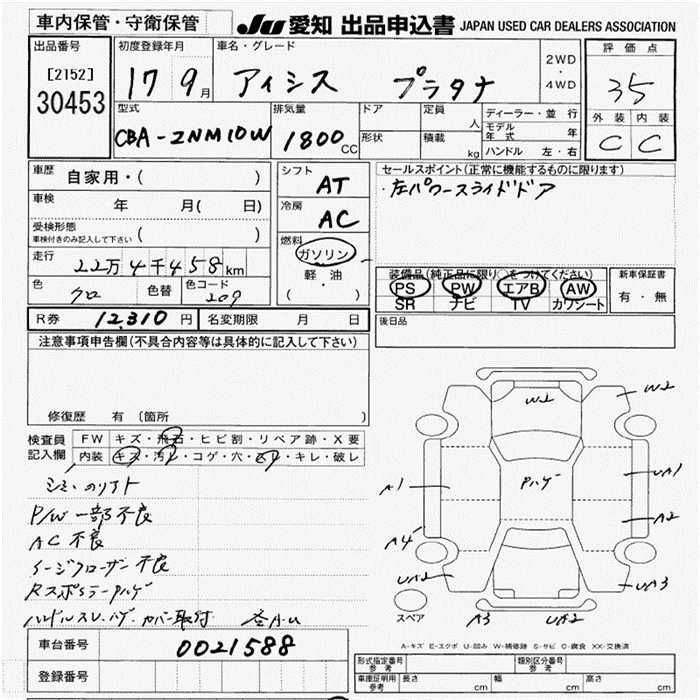 車内保管・守衛保管
JU 愛知 出品申込書 JAPAN USED CAR DEALERS ASSOCIATION
出品番号
[2152]
30453
初度登録年月
17 9月
車名・グレード
アイシス プラタナ
2WD
・
4WD
評価点
35
外装 内装
C C
型式
CBA-ZNM10W
排気量
1800CC
ドア
形状
定員
人
積載
kg
ディーラー・並行
モデル年式 年
ハンドル 左・右
車歴 自家用・( )
車検 年 月( 日)
受検形態
車検付きのみ記入して下さい ( )
走行 22万4千458km
色 クロ 色替 色コード 209
シフト AT
冷房 AC
燃料
ガソリン
軽・油
( )
セールスポイント(正常に機能するものに限ります)
・左パワースライドドア
装備品(純正品に限り○をつけてください)
PS PW エアB AW
SR ナビ TV カワシート
新車保証書
有・無
R券 12,310円 名変期限 月 日
後日品
注意事項申告欄(不具合内容等は具体的に記入して下さい)
修復歴 有(箇所 )
検査員記入欄
FW キズ・飛石・ヒビ割・リペア跡・X要
内装 キズ・汚レ・コゲ・穴・スレ・キレ・破レ
シミ、のリフト
P/W一部不良
AC不良
イージクローザー不良
Rスポイラーハゲ
ハンドルスレ、ハゲ、カバー取付 各A・U
W2
W2
A1
Pハゲ
UA1
A2
A4
UA2
UA3
A3
UA2
スペア
A-キズ E-エクボ U-凹み W-補修跡 S-サビ C-腐食 XX-交換済
車台番号 0021588
登録番号
型式指定番号 参考
類別区分番号 参考
車庫証明用 参考 長さ cm 幅 cm 高さ cm